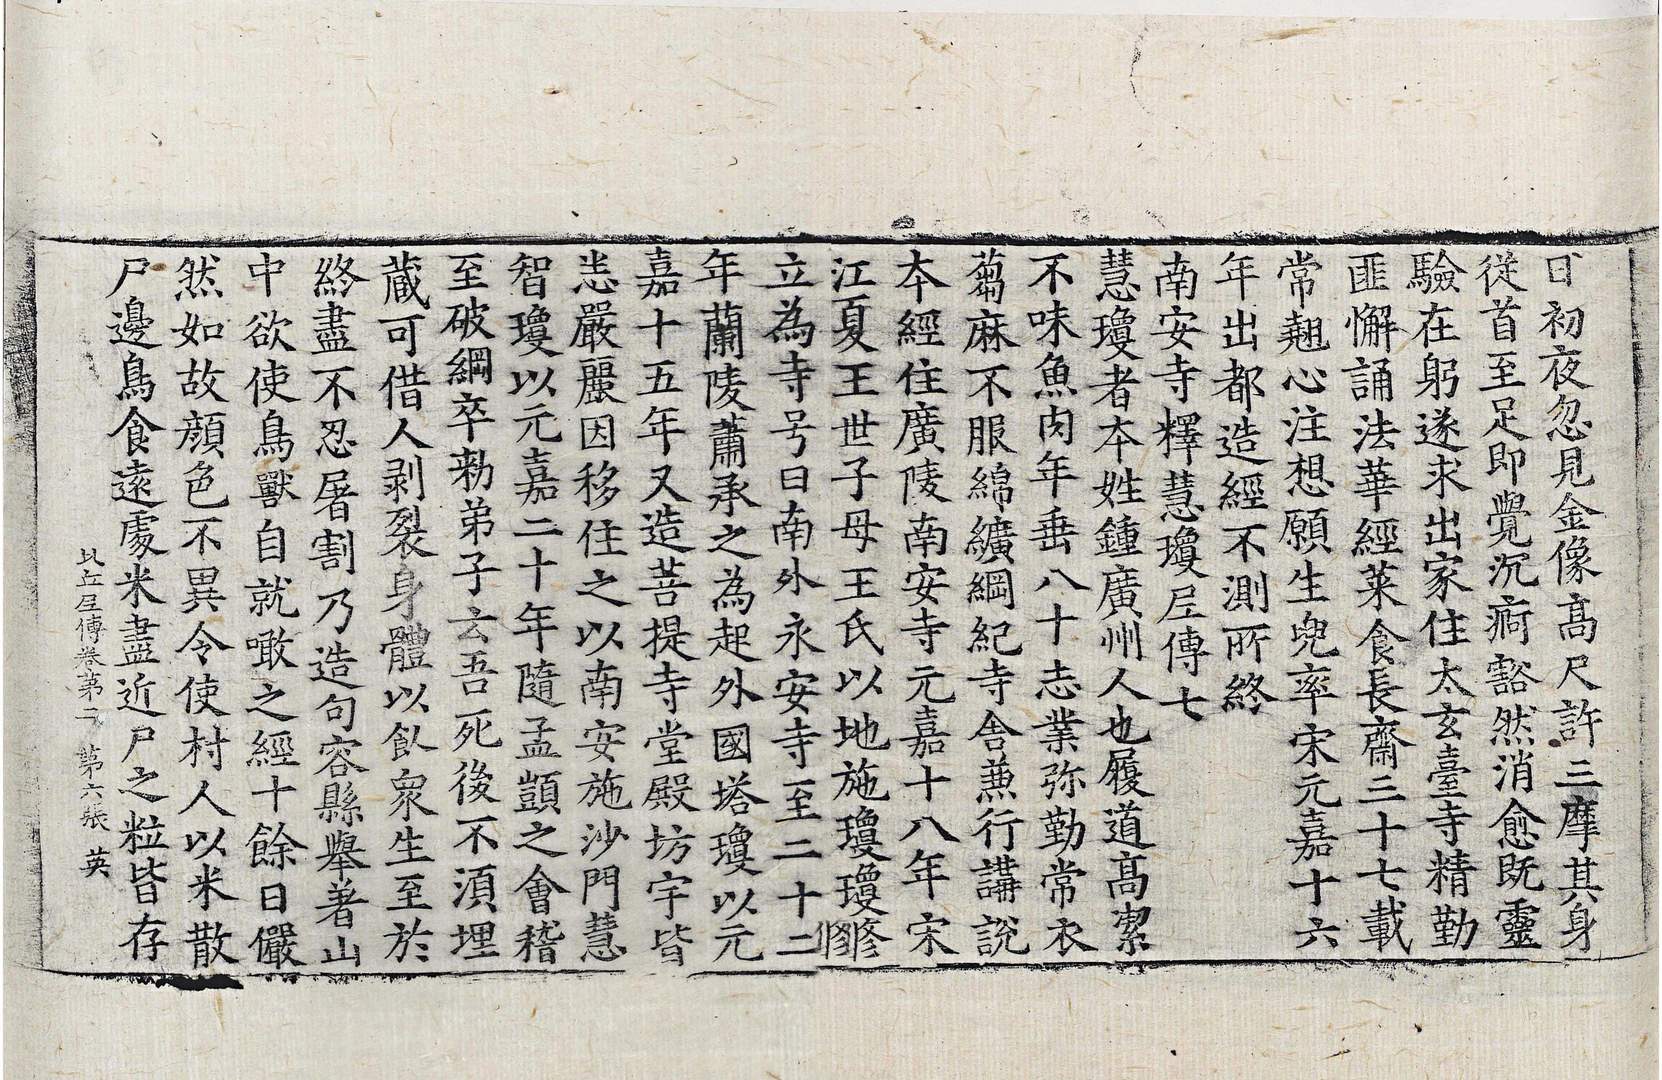 日初夜忽見金像高尺許三摩其身
從首至足即覺沉痾豁然消愈既靈
驗在躬遂求出家住太玄臺寺精勤
匪懈誦法華經菜食長齋三十七載
常翹心注想願生兜率宋元嘉十六
年出都造經不測所終
南安寺釋慧瓊尼傳七
慧瓊者本姓鍾廣州人也履道高潔
不味魚肉年垂八十志業弥勤常衣
蒭麻不服綿纊綱紀寺舍蕪行講說
本經住廣陵南安寺元嘉十八年宋
江夏王世子母王氏以地施瓊瓊修
立為寺号曰南外永安寺至二十二
年蘭陵蕭承之為起外國塔瓊以元
嘉十五年又造菩提寺堂殿坊宇皆
悉嚴麗因移住之以南安施沙門慧
智瓊以元嘉二十年隨孟顗之會稽
至破綱卒勑弟子云吾死後不湏埋
蔵可借人剥裂身體以飤衆生至於
終盡不忍屠割乃造句容縣舉著山
中欲使鳥獸自就噉之經十餘日儼
然如故顔色不異令使村人以米散
尸邊鳥食遠處米盡近尸之粒皆存
比丘尼傳卷第二 第六張 英